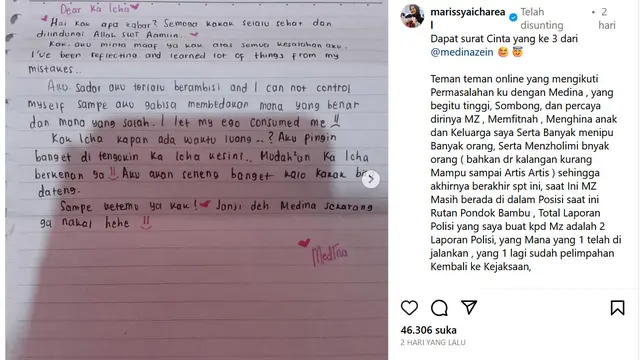 Dear Ka Icha
"Hai kak apa kabar? Semoga kakak selalu sehat dan
dilindungi Allah SWT Aamiin..
Kak, aku minta maaf ya kak atas semua kesalahan aku.
I've been reflecting and learned lot of things from my
mistakes..
Aku sadar aku terlalu berambisi and I can not control
myself sampe aku gabisa membedakan mana yang benar
dan mana yang salah. I let my ego consumed me !!
Kak Icha kapan ada waktu luang..? Aku pingin
banget di tengokin Ka Icha kesini.. Mudah²an Ka Icha
berkenan ya !! Aku akan seneng banget kalo kakak bisa
dateng.
Sampe ketemu ya kak! Janji deh Medina sekarang
ga nakal hehe !!
Medina
marissyaicharea
l
Telah
disunting
•
2
hari
Dapat surat Cinta yang ke 3 dari
@medinazein 😍 😇
Teman teman online yang mengikuti
Permasalahan ku dengan Medina , yang
begitu tinggi, Sombong, dan percaya
dirinya MZ , Memfitnah , Menghina anak
dan Keluarga saya Serta Banyak menipu
Banyak orang, Serta Menzholimi bnyak
orang ( bahkan dr kalangan kurang
Mampu sampai Artis Artis ) sehingga
akhirnya berakhir spt ini, saat Ini MZ
Masih berada di dalam Posisi saat ini
Rutan Pondok Bambu , Total Laporan
Polisi yang saya buat kpd Mz adalah 2
Laporan Polisi, yang Mana yang 1 telah di
jalankan , yang 1 lagi sudah pelimpahan
Kembali ke Kejaksaan,
46.306 suka
2 HARI YANG LALU